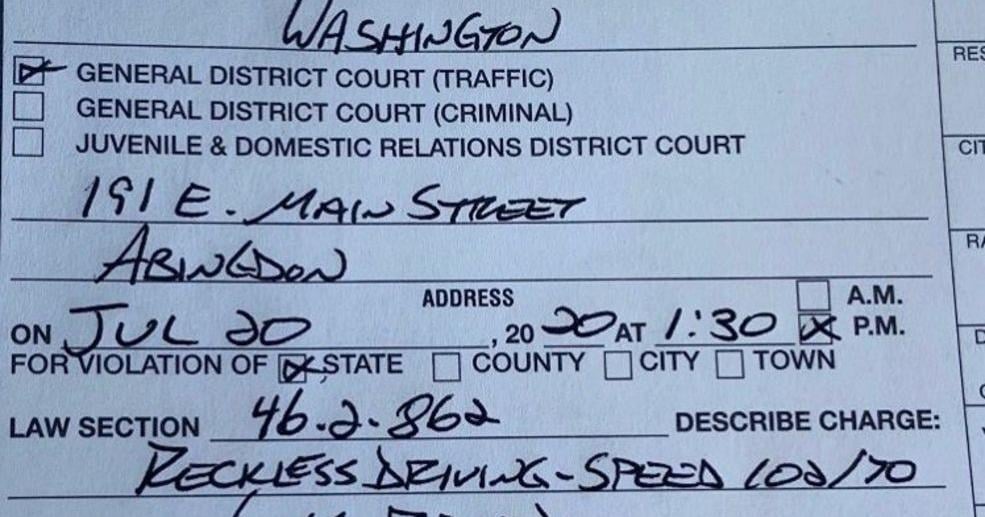 WASHINGTON
GENERAL DISTRICT COURT (TRAFFIC)
RES
GENERAL DISTRICT COURT (CRIMINAL)
JUVENILE & DOMESTIC RELATIONS DISTRICT COURT
CIT
191 E. MAIN STREET
RA
ABINGDON
ADDRESS
A.M.
ON JUL 20, 20 20 AT 1:30 P.M.
FOR VIOLATION OF STATE COUNTY CITY TOWN
LAW SECTION 46.2-862 DESCRIBE CHARGE:
RECKLESS DRIVING-SPEED 102/70